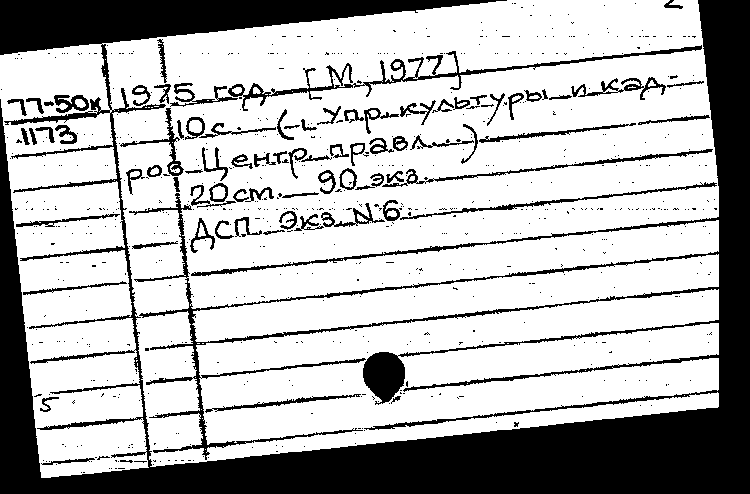 2
77-50к 1975 год. [М., 1977]
1173 10 с. (Упр. культуры и кад-
ров Центр. правл...)
20 см. 90 экз.
ДСП. Экз. N 6.
5